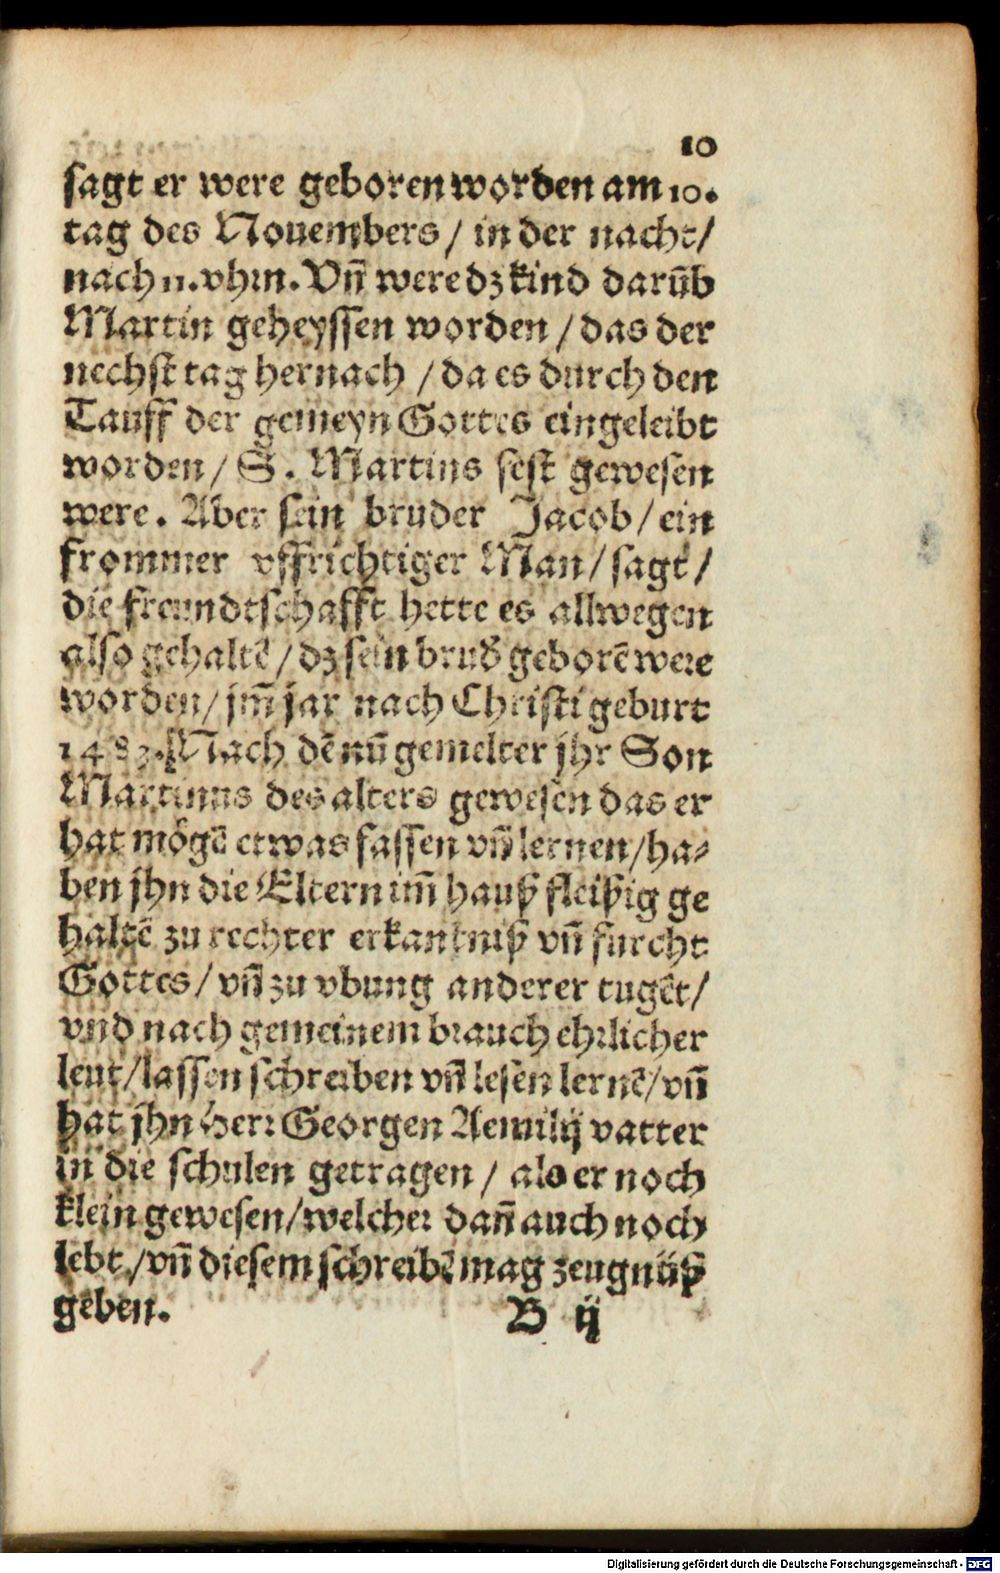 10
sagt er were geboren worden am 10.
tag des Nouembers / in der nacht /
nach 11. vhrn. Vñ were dz kind darüb
Martin geheyssen worden / das der
nechst tag hernach / da es durch den
Tauff der gemeyn Gottes eingeleibt
worden / S. Martins fest gewesen
were. Aber sein bruder Jacob / ein
frommer vffrichtiger Man / sagt /
die freundtschafft hette es allwegen
also gehaltẽ / dz sein brud' geborẽ were
worden / jm̃ jar nach Christi geburt
1483. Nach dẽ nũ gemelter jhr Son
Martinus des alters gewesen das er
hat mögẽ etwas fassen vñ lernen / ha-
ben jhn die Eltern im̃ hauß fleißig ge
haltẽ zu rechter erkantniß vñ furcht
Gottes / vñ zu vbung anderer tugẽt /
vnd nach gemeinem brauch ehrlicher
leut / lassen schreiben vñ lesen lernẽ / vñ
hat jhn Herr Georgen Aemilij vatter
in die schulen getragen / als er noch
klein gewesen / welcher dañ auch noch
lebt / vñ diesem schreibẽ mag zeugnüß
geben.
B ij
Digitalisierung gefördert durch die Deutsche Forschungsgemeinschaft - DFG